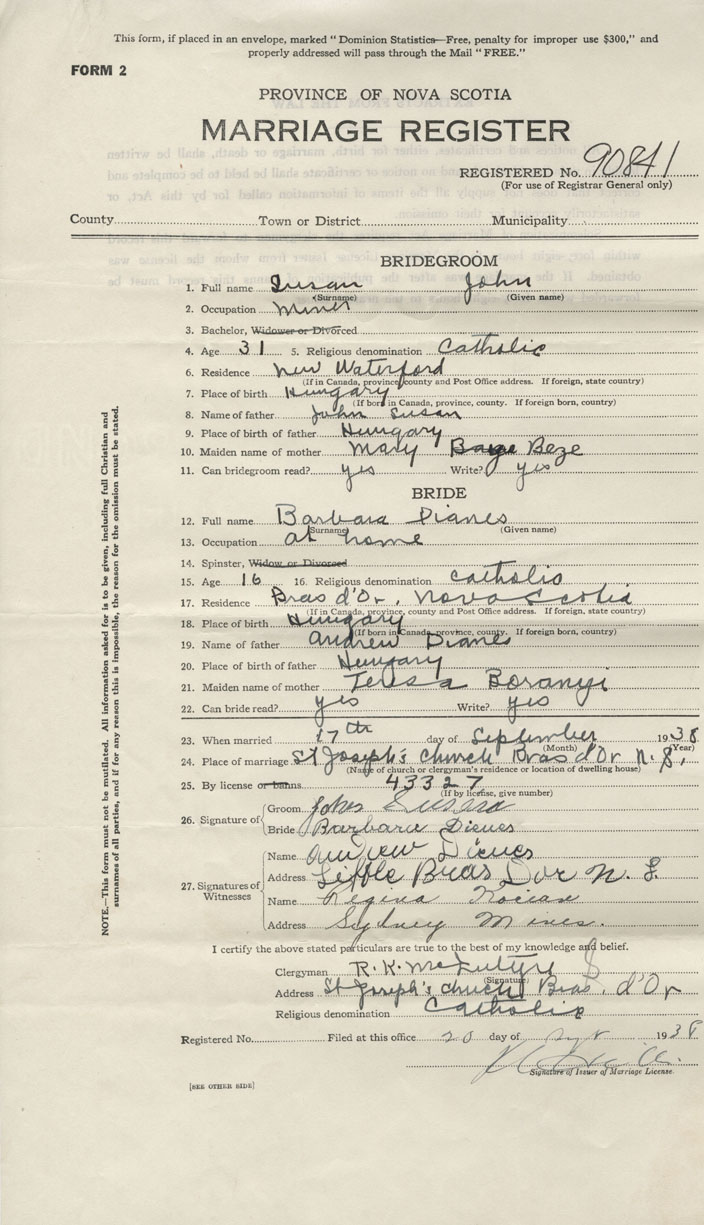 This form, if placed in an envelope, marked "Dominion Statistics—Free, penalty for improper use $300," and
properly addressed will pass through the Mail "FREE."
FORM 2
PROVINCE OF NOVA SCOTIA
MARRIAGE REGISTER
REGISTERED No. 90841
(For use of Registrar General only)
County Town or District Municipality
BRIDEGROOM
1. Full name Susan John
(Surname) (Given name)
2. Occupation Miner
3. Bachelor, Widower or Divorced
4. Age 31 5. Religious denomination Catholic
6. Residence New Waterford
(If in Canada, province, county and Post Office address. If foreign, state country)
7. Place of birth Hungary
(If born in Canada, province, county. If foreign born, country)
8. Name of father John Susan
9. Place of birth of father Hungary
10. Maiden name of mother Mary Beze
11. Can bridegroom read? yes Write? yes
BRIDE
12. Full name Barbara Dianes
(Surname) (Given name)
13. Occupation at home
14. Spinster, Widow or Divorced
15. Age 16 16. Religious denomination Catholic
17. Residence Bras d'Or, Nova Scotia
(If in Canada, province, county and Post Office address. If foreign, state country)
18. Place of birth Hungary
(If born in Canada, province, county. If foreign born, country)
19. Name of father Andrew Dianes
20. Place of birth of father Hungary
21. Maiden name of mother Teresa Boranyi
22. Can bride read? yes Write? yes
23. When married 17th day of September 1938
(Month) (Year)
24. Place of marriage St Joseph's Church Bras d'Or N.S.
(Name of church or clergyman's residence or location of dwelling house)
25. By license or banns 43327
(If by license, give number)
26. Signature of
Groom John
Bride Barbara Dienes
27. Signatures of Witnesses
Name Andrew Dienes
Address Little Bras Dor N. S.
Name Regina
Address Sydney Mines.
I certify the above stated particulars are true to the best of my knowledge and belief.
Clergyman R. K. McIntyre
(Signature)
Address St Joseph's Church Bras d'Or
Religious denomination Catholic
Registered No. Filed at this office 20 day of Sept 1938
Signature of Issuer of Marriage License
[SEE OTHER SIDE]
NOTE.—This form must not be mutilated. All information asked for is to be given, including full Christian and
surnames of all parties, and if for any reason this is impossible, the reason for the omission must be stated.